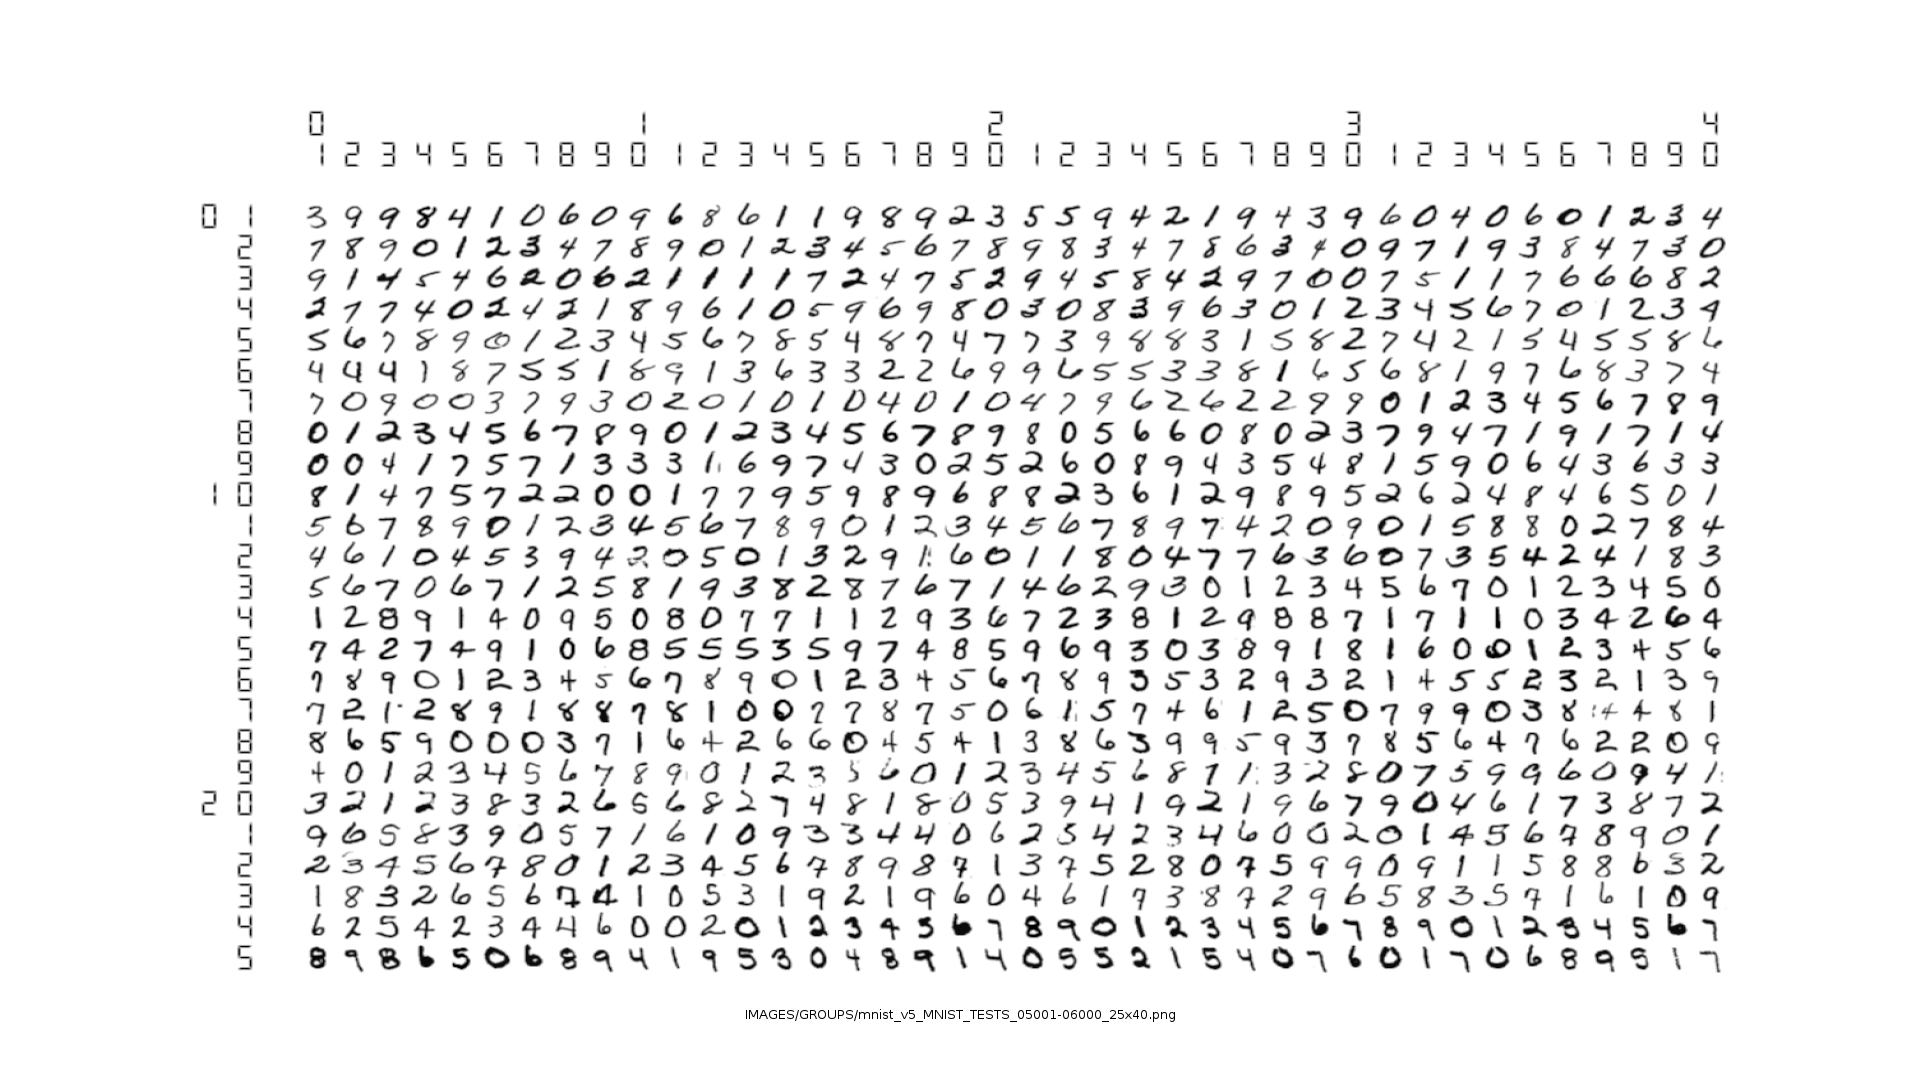 0 1 2 3 4
1 2 3 4 5 6 7 8 9 0 1 2 3 4 5 6 7 8 9 0 1 2 3 4 5 6 7 8 9 0 1 2 3 4 5 6 7 8 9 0
0 1 3 9 9 8 4 1 0 6 0 9 6 8 6 1 1 9 8 9 2 3 5 5 9 4 2 1 9 4 3 9 6 0 4 0 6 0 1 2 3 4
2 7 8 9 0 1 2 3 4 7 8 9 0 1 2 3 4 5 6 7 8 9 8 3 4 7 8 6 3 4 0 9 7 1 9 3 8 4 7 3 0
3 9 1 4 5 4 6 2 0 6 2 1 1 1 1 7 2 4 7 5 2 9 4 5 8 4 2 9 7 0 0 7 5 1 1 7 6 6 6 8 2
4 2 7 7 4 0 2 4 2 1 8 9 6 1 0 5 9 6 9 8 0 3 0 8 3 9 6 3 0 1 2 3 4 5 6 7 0 1 2 3 4
5 5 6 7 8 9 0 1 2 3 4 5 6 7 8 5 4 8 7 4 7 7 3 9 8 8 3 1 5 8 2 7 4 2 1 5 4 5 5 8 6
6 4 4 4 1 8 7 5 5 1 8 9 1 3 6 3 3 2 2 6 9 9 6 5 5 3 3 8 1 6 5 6 8 1 9 7 6 8 3 7 4
7 7 0 9 0 0 3 7 9 3 0 2 0 1 0 1 0 4 0 1 0 4 7 9 6 2 6 2 2 9 9 0 1 2 3 4 5 6 7 8 9
8 0 1 2 3 4 5 6 7 8 9 0 1 2 3 4 5 6 7 8 9 8 0 5 6 6 0 8 0 2 3 7 9 4 7 1 9 1 7 1 4
9 0 0 4 1 7 5 7 1 3 3 3 1 6 9 7 4 3 0 2 5 2 6 0 8 9 4 3 5 4 8 1 5 9 0 6 4 3 6 3 3
1 0 8 1 4 7 5 7 2 2 0 0 1 7 7 9 5 9 8 9 6 8 8 2 3 6 1 2 9 8 9 5 2 6 2 4 8 4 6 5 0 1
1 5 6 7 8 9 0 1 2 3 4 5 6 7 8 9 0 1 2 3 4 5 6 7 8 9 7 4 2 0 9 0 1 5 8 8 0 2 7 8 4
2 4 6 1 0 4 5 3 9 4 2 0 5 0 1 3 2 9 1 6 0 1 1 8 0 4 7 7 6 3 6 0 7 3 5 4 2 4 1 8 3
3 5 6 7 0 6 7 1 2 5 8 1 9 3 8 2 8 7 6 7 1 4 6 2 9 3 0 1 2 3 4 5 6 7 0 1 2 3 4 5 0
4 1 2 8 9 1 4 0 9 5 0 8 0 7 7 1 1 2 9 3 6 7 2 3 8 1 2 9 8 8 7 1 7 1 1 0 3 4 2 6 4
5 7 4 2 7 4 9 1 0 6 8 5 5 5 3 5 9 7 4 8 5 9 6 9 3 0 3 8 9 1 8 1 6 0 0 1 2 3 4 5 6
6 7 8 9 0 1 2 3 4 5 6 7 8 9 0 1 2 3 4 5 6 7 8 9 3 5 3 2 9 3 2 1 4 5 5 2 3 2 1 3 9
7 7 2 1 2 8 9 1 8 8 7 8 1 0 0 7 7 8 7 5 0 6 1 5 7 4 6 1 2 5 0 7 9 9 0 3 8 4 4 8 1
8 8 6 5 9 0 0 0 3 7 1 6 4 2 6 6 0 4 5 4 1 3 8 6 3 9 9 5 9 3 7 8 5 6 4 7 6 2 2 0 9
9 4 0 1 2 3 4 5 6 7 8 9 0 1 2 3 5 6 0 1 2 3 4 5 6 8 7 1 3 2 8 0 7 5 9 9 6 0 9 4 1
2 0 3 2 1 2 3 8 3 2 6 5 6 8 2 7 4 8 1 8 0 5 3 9 4 1 9 2 1 9 6 7 9 0 4 6 1 7 3 8 7 2
1 9 6 5 8 3 9 0 5 7 1 6 1 0 9 3 3 4 4 0 6 2 5 4 2 3 4 6 0 0 2 0 1 4 5 6 7 8 9 0 1
2 2 3 4 5 6 7 8 0 1 2 3 4 5 6 7 8 9 8 7 1 3 7 5 2 8 0 7 5 9 9 0 9 1 1 5 8 8 6 3 2
3 1 8 3 2 6 5 6 7 4 1 0 5 3 1 9 2 1 9 6 0 4 6 1 7 3 8 7 2 9 6 5 8 3 5 7 1 6 1 0 9
4 6 2 5 4 2 3 4 4 6 0 0 2 0 1 2 3 4 5 6 7 8 9 0 1 2 3 4 5 6 7 8 9 0 1 2 3 4 5 6 7
5 8 9 8 6 5 0 6 8 9 4 1 9 5 3 0 4 8 9 1 4 0 5 5 2 1 5 4 0 7 6 0 1 7 0 6 8 9 5 1 7
IMAGES/GROUPS/mnist_v5_MNIST_TESTS_05001-06000_25x40.png